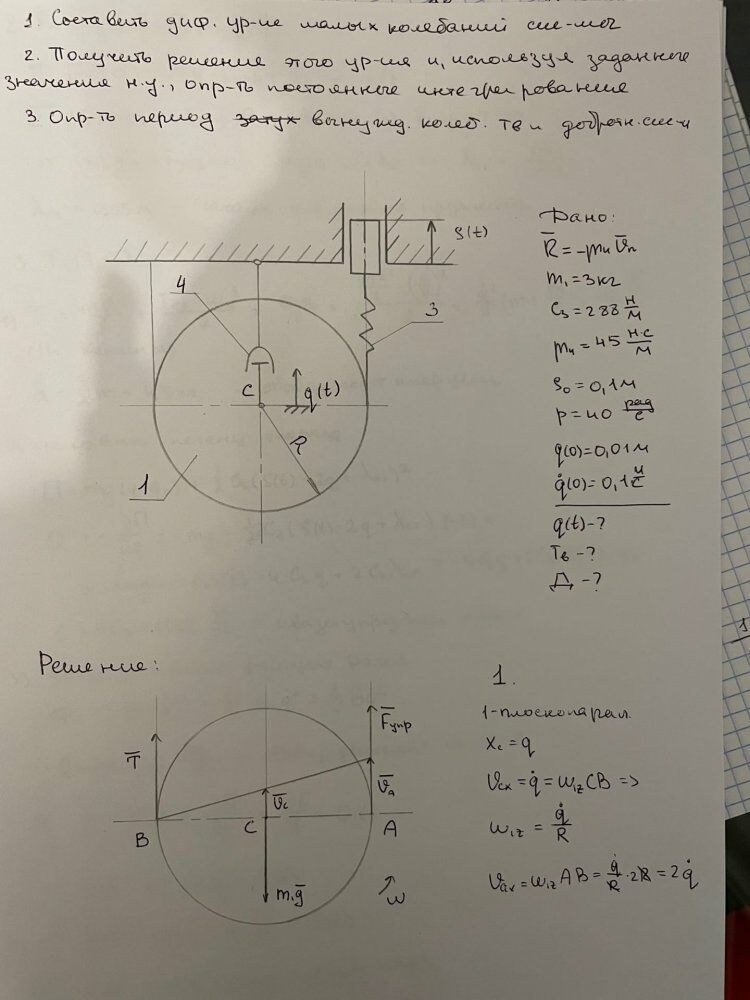 1. Составить диф. ур-ие малых колебаний сис-мы
2. Получить решение этого ур-ия и, используя заданные
значения н.у., опр-ть постоянные интегрирования
3. Опр-ть период вынужд. колеб. Тв и добротн. сис-ы
Дано:
R̅ = -μ₄ V̅п
m₁ = 3 кг
c₃ = 288 Н/м
μ₄ = 45 Н·с/м
s₀ = 0,1 м
p = 40 рад/с
q(0) = 0,01 м
q̇(0) = 0,1 м/с
q(t) - ?
Тв - ?
Д - ?
s(t)
4
3
C
q(t)
R
1
Решение:
1.
1-плоскопарал.
xc = q
Vcx = q̇ = ω1z CB =>
ω1z = q̇/R
Vax = ω1z AB = q̇/R · 2R = 2q̇
T̅
F̅упр
V̅c
V̅a
B
C
A
m₁g̅
ω
1